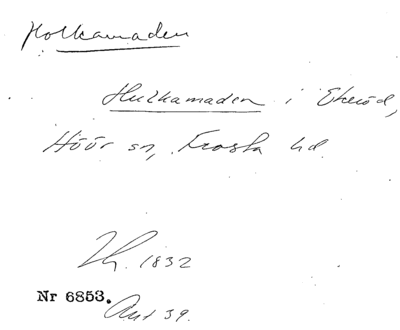 Holkamaden
Hulkamaden i Ekeröd,
Höör sn, Frosta hd.
1832
Nr 6853.
39.